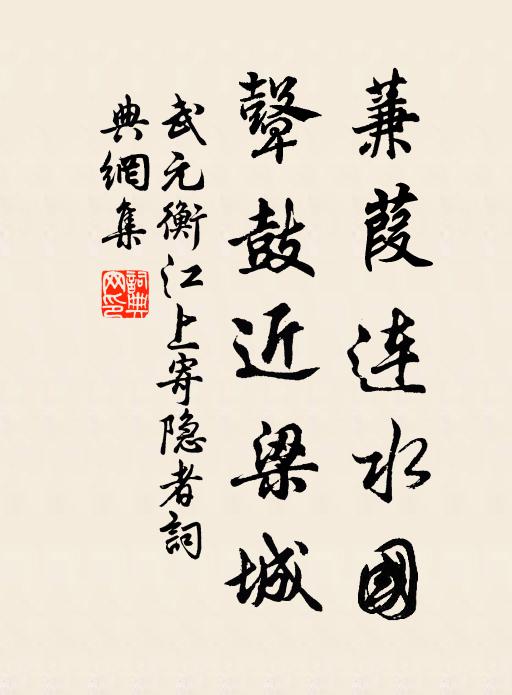 蒹葭连水國
鼙鼓近梁城
武元衡江上寄隐者詞
典網集
詞典
网印